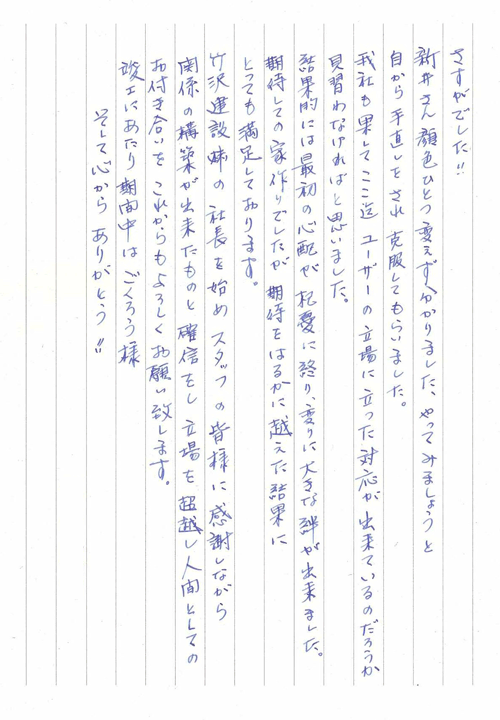 さすがでした!!
新井さん顔色ひとつ変えず、わかりました、やってみましょうと
自から手直しをされ克服してもらいました。
我社も果してここ迄ユーザーの立場に立った対応が出来ているのだろうか
見習わなければと思いました。
結果的には最初の心配が杞憂に終り、変りに大きな絆が出来ました。
期待しての家作りでしたが期待をはるかに越えた結果に
とっても満足しております。
竹沢建設㈱の社長を始めスタッフの皆様に感謝しながら
関係の構築が出来たものと確信をし立場を超越し人間としての
お付き合いをこれからもよろしくお願い致します。
竣工にあたり期間中はごくろう様
そして心からありがとう!!